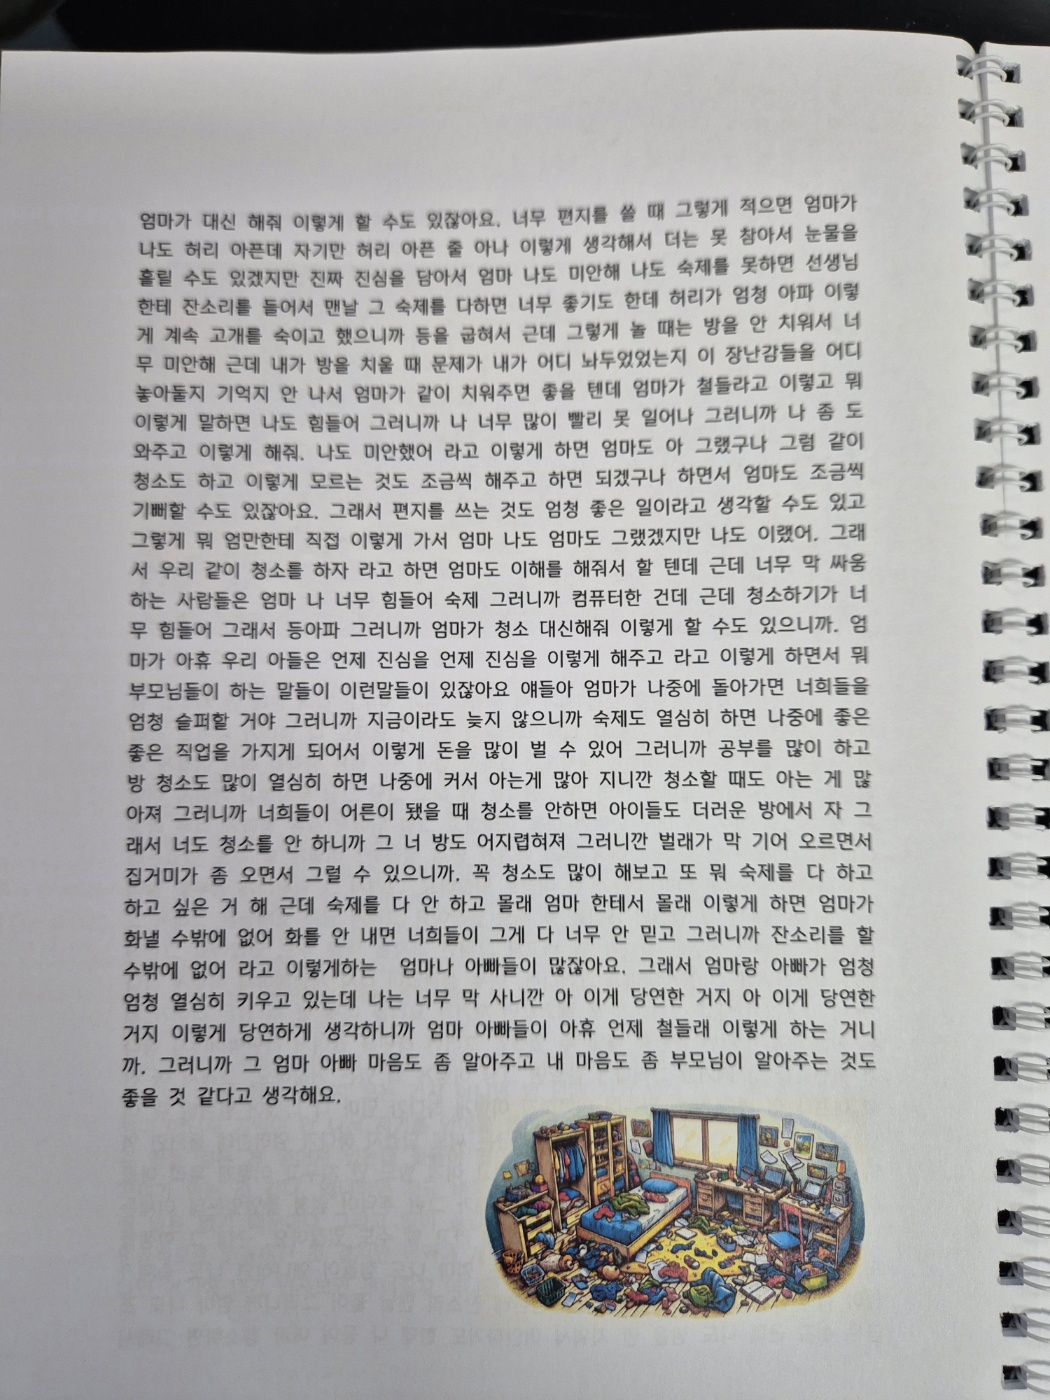 엄마가 대신 해줘 이렇게 할 수도 있잖아요. 너무 편지를 쓸 때 그렇게 적으면 엄마가
나도 허리 아픈데 자기만 허리 아픈 줄 아나 이렇게 생각해서 더는 못 참아서 눈물을
흘릴 수도 있겠지만 진짜 진심을 담아서 엄마 나도 미안해 나도 숙제를 못하면 선생님
한테 잔소리를 들어서 맨날 그 숙제를 다하면 너무 좋기도 한데 허리가 엄청 아파 이렇
게 계속 고개를 숙이고 했으니까 등을 굽혀서 근데 그렇게 놀 때는 방을 안 치워서 너
무 미안해 근데 내가 방을 치울 때 문제가 내가 어디 놔두었었는지 이 장난감들을 어디
놓아둘지 기억지 안 나서 엄마가 같이 치워주면 좋을 텐데 엄마가 철들라고 이렇고 뭐
이렇게 말하면 나도 힘들어 그러니까 나 너무 많이 빨리 못 일어나 그러니까 나 좀 도
와주고 이렇게 해줘. 나도 미안했어 라고 이렇게 하면 엄마도 아 그랬구나 그럼 같이
청소도 하고 이렇게 모르는 것도 조금씩 해주고 하면 되겠구나 하면서 엄마도 조금씩
기뻐할 수도 있잖아요. 그래서 편지를 쓰는 것도 엄청 좋은 일이라고 생각할 수도 있고
그렇게 뭐 엄만한테 직접 이렇게 가서 엄마 나도 엄마도 그랬겠지만 나도 이랬어. 그래
서 우리 같이 청소를 하자 라고 하면 엄마도 이해를 해줘서 할 텐데 근데 너무 막 싸움
하는 사람들은 엄마 나 너무 힘들어 숙제 그러니까 컴퓨터한 건데 근데 청소하기가 너
무 힘들어 그래서 등아파 그러니까 엄마가 청소 대신해줘 이렇게 할 수도 있으니까. 엄
마가 아휴 우리 아들은 언제 진심을 언제 진심을 이렇게 해주고 라고 이렇게 하면서 뭐
부모님들이 하는 말들이 이런말들이 있잖아요 얘들아 엄마가 나중에 돌아가면 너희들을
엄청 슬퍼할 거야 그러니까 지금이라도 늦지 않으니까 숙제도 열심히 하면 나중에 좋은
좋은 직업을 가지게 되어서 이렇게 돈을 많이 벌 수 있어 그러니까 공부를 많이 하고
방 청소도 많이 열심히 하면 나중에 커서 아는게 많아 지니깐 청소할 때도 아는 게 많
아져 그러니까 너희들이 어른이 됐을 때 청소를 안하면 아이들도 더러운 방에서 자 그
래서 너도 청소를 안 하니까 그 너 방도 어지렵혀져 그러니깐 벌래가 막 기어 오르면서
집거미가 좀 오면서 그럴 수 있으니까. 꼭 청소도 많이 해보고 또 뭐 숙제를 다 하고
하고 싶은 거 해 근데 숙제를 다 안 하고 몰래 엄마 한테서 몰래 이렇게 하면 엄마가
화낼 수밖에 없어 화를 안 내면 너희들이 그게 다 너무 안 믿고 그러니까 잔소리를 할
수밖에 없어 라고 이렇게하는 엄마나 아빠들이 많잖아요. 그래서 엄마랑 아빠가 엄청
엄청 열심히 키우고 있는데 나는 너무 막 사니깐 아 이게 당연한 거지 아 이게 당연한
거지 이렇게 당연하게 생각하니까 엄마 아빠들이 아휴 언제 철들래 이렇게 하는 거니
까. 그러니까 그 엄마 아빠 마음도 좀 알아주고 내 마음도 좀 부모님이 알아주는 것도
좋을 것 같다고 생각해요.